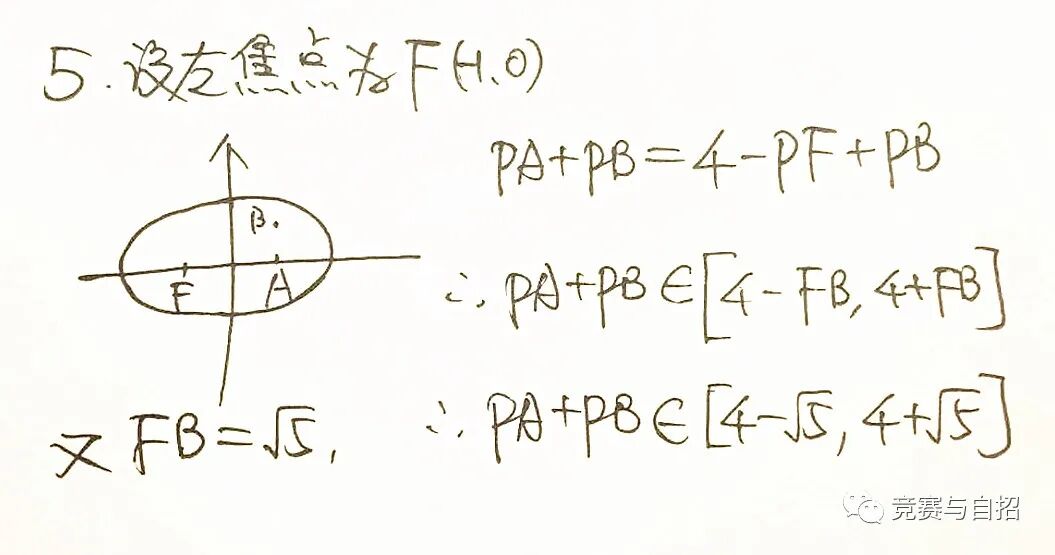 5. 设左焦点为F(-1,0)
PA+PB=4-PF+PB
B.
F A
∴ PA+PB∈[4-FB,4+FB]
又FB=√5,
∴ PA+PB∈[4-√5,4+√5]
竞赛与自招